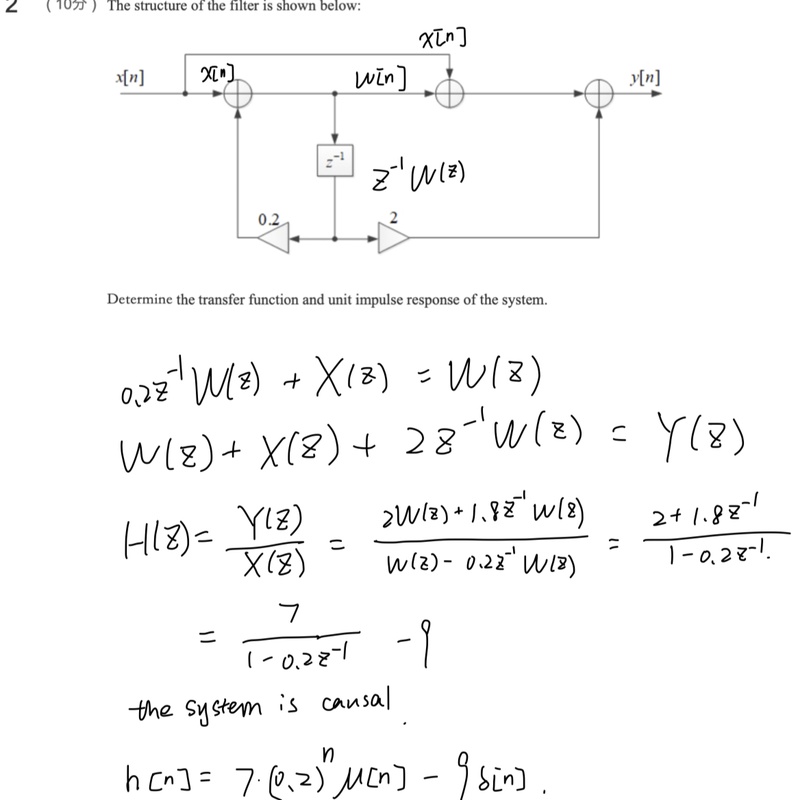 2 (10分) The structure of the filter is shown below:
x[n]
x[n] x[n] W[n] y[n]
z⁻¹ z⁻¹W(z)
0.2 2
Determine the transfer function and unit impulse response of the system.
0.2z⁻¹W(z) + X(z) = W(z)
W(z) + X(z) + 2z⁻¹W(z) = Y(z)
H(z) = Y(z)/X(z) = (2W(z) + 1.8z⁻¹W(z))/(W(z) - 0.2z⁻¹W(z)) = (2 + 1.8z⁻¹)/(1 - 0.2z⁻¹).
= 7/(1 - 0.2z⁻¹) - 9
the system is causal.
h[n] = 7·(0.2)ⁿ μ[n] - 9δ[n].